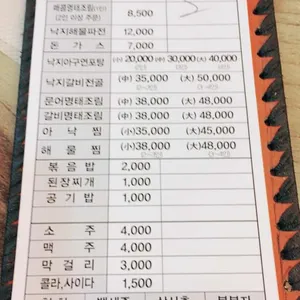 매콤명태조림(1인)
(2인 이상 주문) 8,500
낙지해물파전 12,000
돈가스 7,000
낙지아구연포탕 (小)20,000 (中)30,000 (大)40,000
낙지갈비전골 (中)35,000 (大)50,000
문어명태조림 (中)38,000 (大)48,000
갈비명태조림 (中)38,000 (大)48,000
아낙찜 (小)35,000 (大)45,000
해물찜 (小)38,000 (大)48,000
볶음밥 2,000
된장찌개 1,000
공기밥 1,000
소주 4,000
맥주 4,000
막걸리 3,000
콜라,사이다 1,500